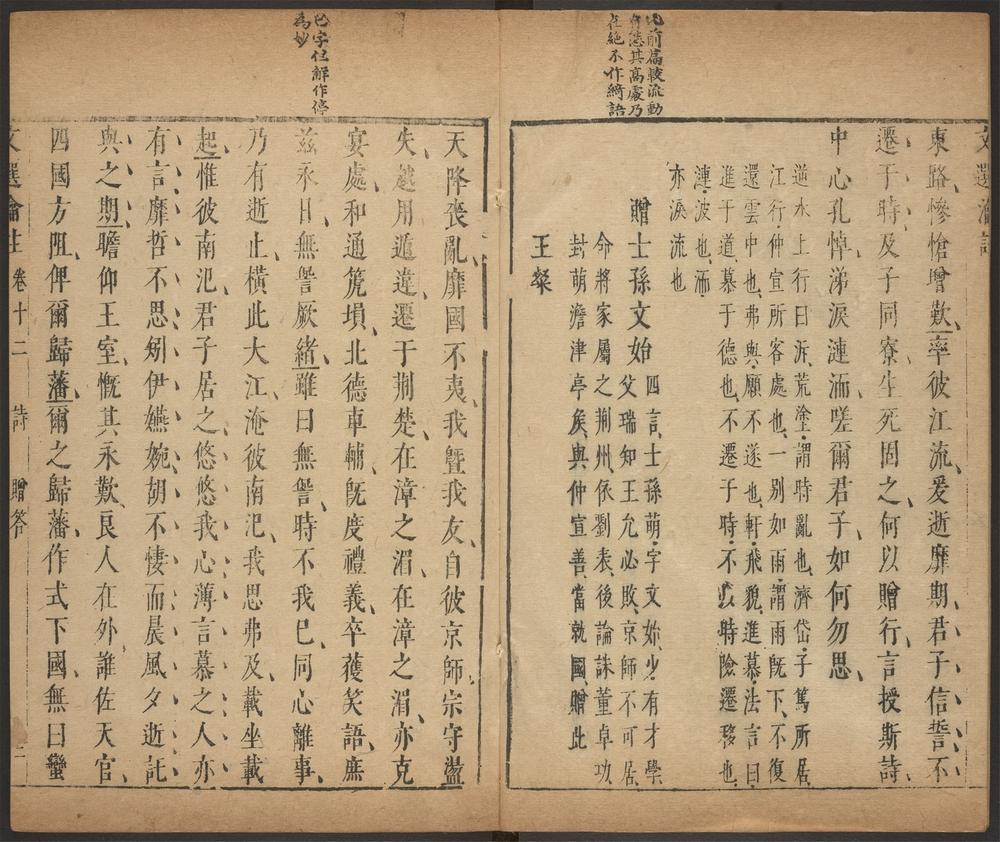 文選瀹註
東路慘愴增歎率彼江流爰逝靡期君子信誓不
遷于時及子同寮生死固之何以贈行言授斯詩
中心孔悼涕淚漣洏嗟爾君子如何勿思
逆水上行曰泝荒塗謂時亂也濟岱子篤所居
江行仲宣所客處也一別如雨謂雨既下不復
還雲中也弗與願不遂也軒飛貌進慕法言曰
進于道慕于德也不遷于時不以時險遷移也
漣波也洏
亦淚流也
贈士孫文始
四言士孫萌字文始少有才學
父瑞知王允必敗京師不可居
命將家屬之荆州依劉表後論誅董卓功
封萌澹津亭矦與仲宣善當就國贈此
王粲
此前篇較流動
其高處乃
在絶不作綺語
天降喪亂靡國不夷我曁我友自彼京師宗守盪
失越用遁違遷于荆楚在漳之湄在漳之湄亦克
宴處和通箎塤比德車輔旣度禮義卒獲笑語庶
兹永日無諐厥緒雖曰無諐時不我已同心離事
乃有逝止橫此大江淹彼南汜我思弗及載坐載
起惟彼南汜君子居之悠悠我心薄言慕之人亦
有言靡哲不思矧伊嬿婉胡不悽而晨風夕逝託
與之期瞻仰王室慨其永歎良人在外誰佐天官
四國方阻俾爾歸藩爾之歸藩作式下國無曰蠻
已字仕解作停
爲妙
文選瀹註 卷十二 詩 贈答 二